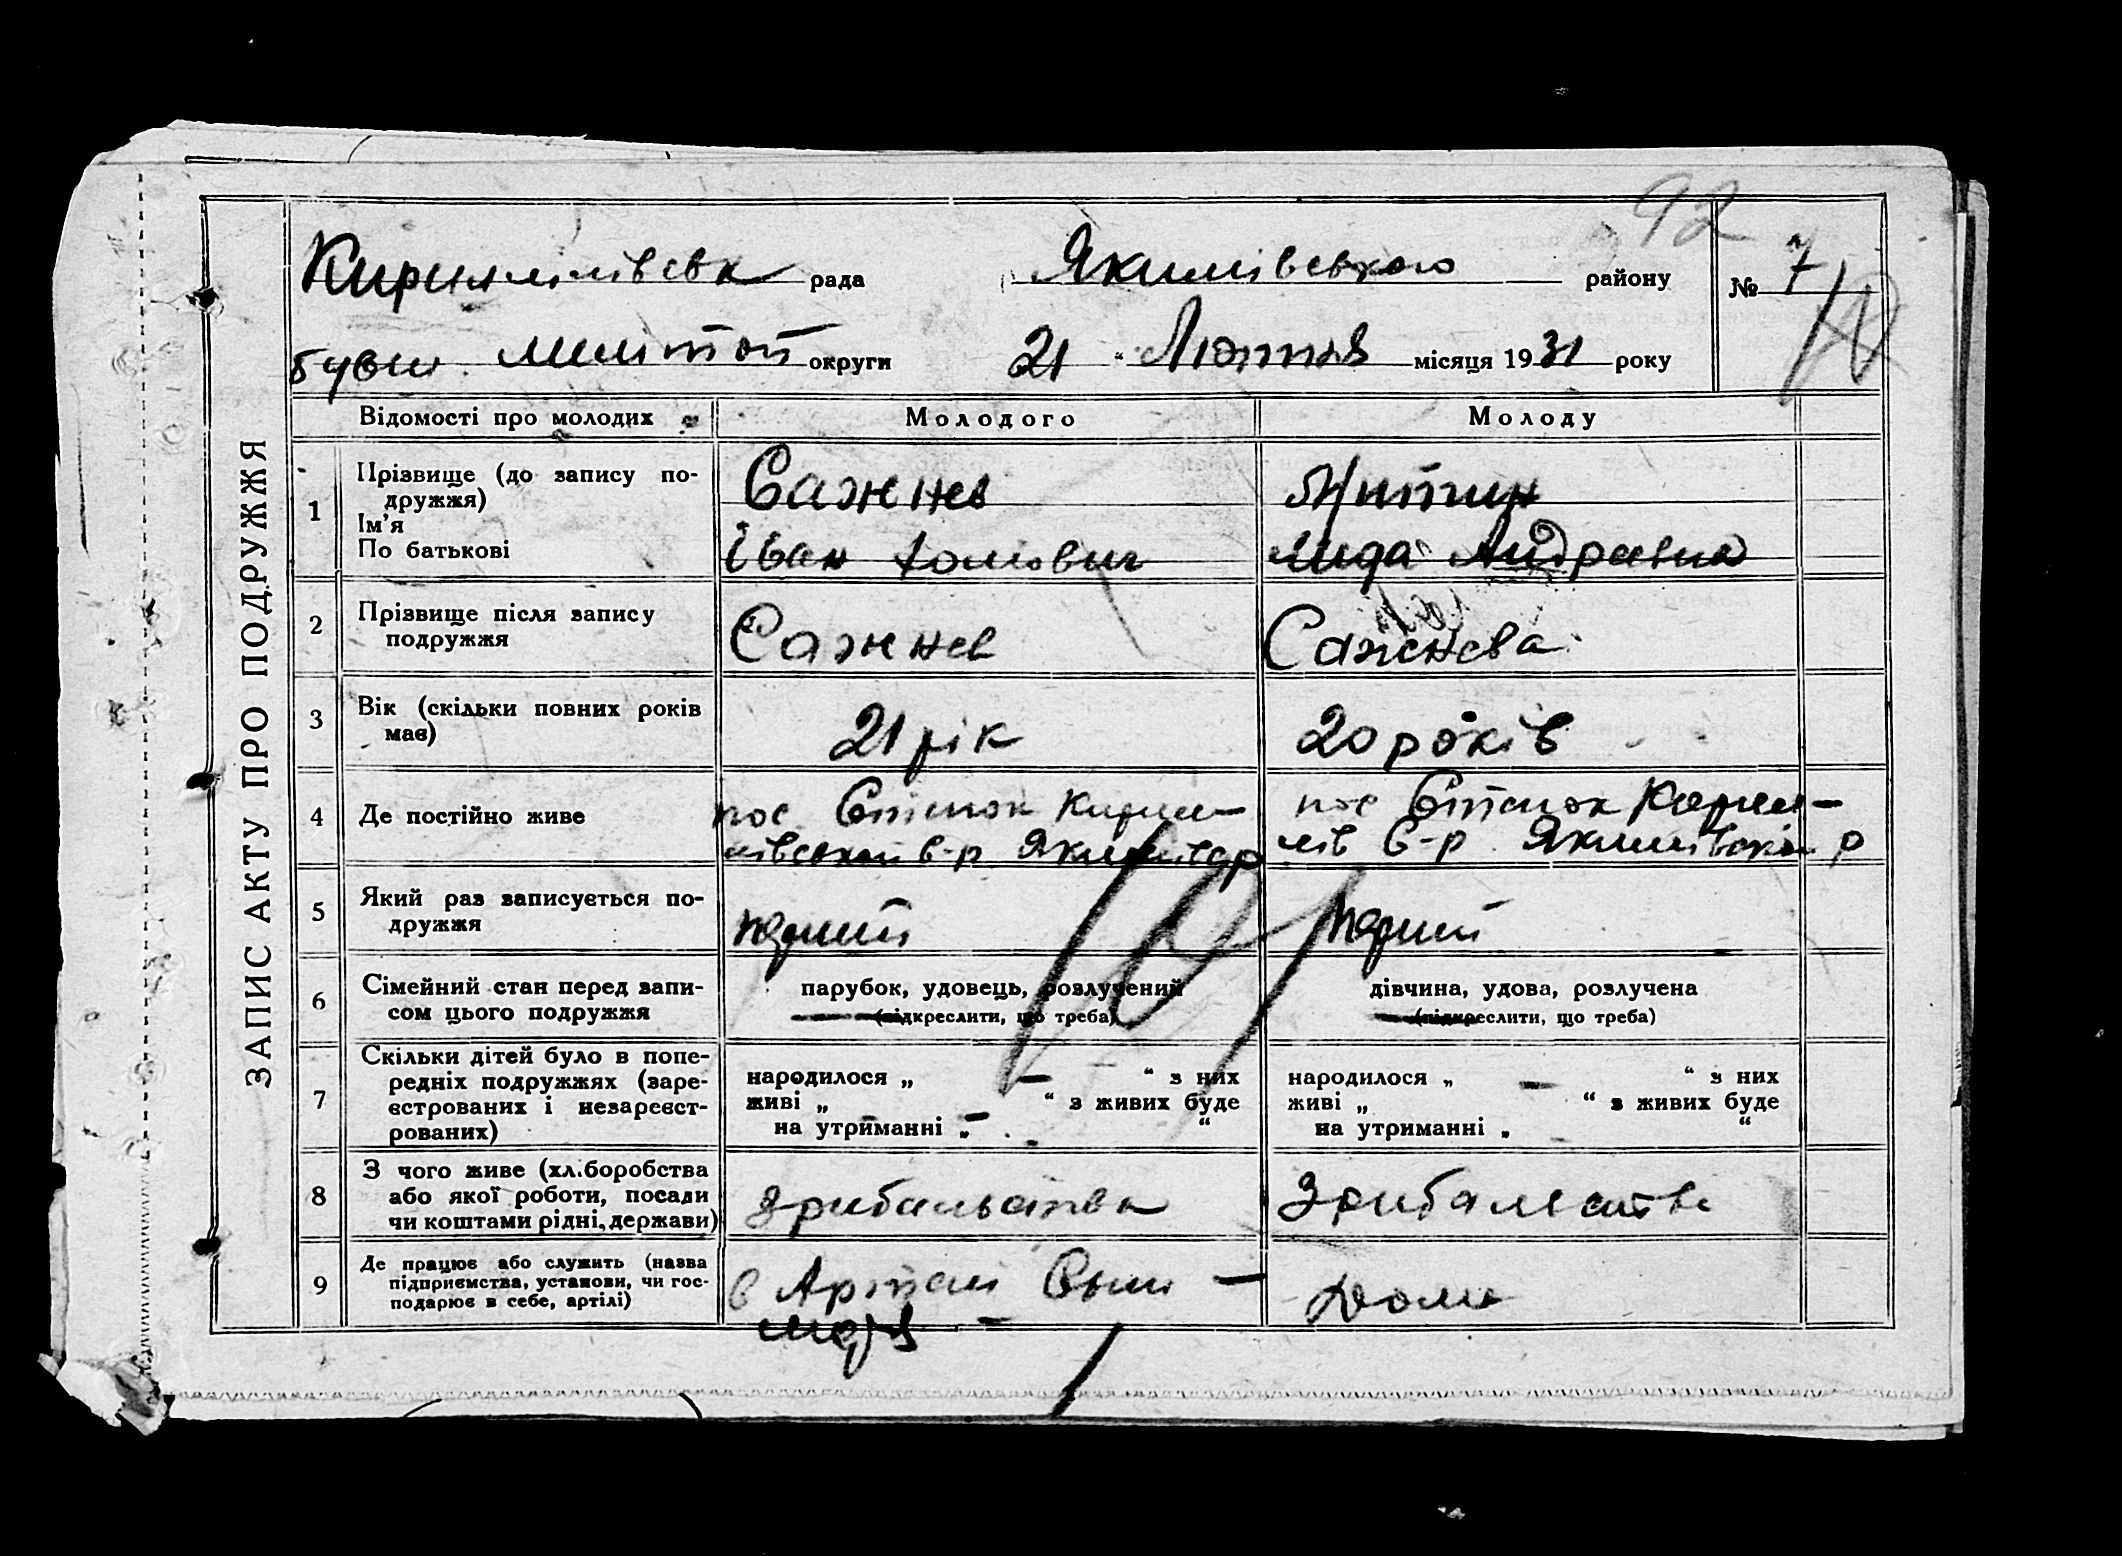 92
Кирилілівськ рада Якимівського району № 7
бувш. Меліттоп округи 21 " Лютня місяця 1931 року
ЗАПИС АКТУ ПРО ПОДРУЖЖЯ
Відомості про молодих Молодого Молоду
1 Прізвище (до запису подружжя) Сажнев
Ім'я
По батькові Іван Ліда
2 Прізвище після запису Сажнев Сажнева
подружжя
3 Вік (скільки повних років 21 рік 20 років
має)
4 Де постійно живе пос Степок Кирил- пос Степок Кирил-
лівської с-р Якимівськ р лів с-р Якимівськ р
5 Який раз записується по- перший перший
дружжя
6 Сімейний стан перед запи- парубок, удовець, розлучений дівчина, удова, розлучена
сом цього подружжя (підкреслити, що треба) (підкреслити, що треба)
7 Скільки дітей було в попе-
редніх подружжях (заре- народилося „ — “ з них народилося „ — “ з них
єстрованих і незареєст- живі „ “ з живих буде живі „ “ з живих буде
рованих) на утриманні „ — “ на утриманні „ “
8 З чого живе (хліборобства
або якої роботи, посади з рибальства з рибальства
чи коштами рідні, держави)
9 Де працює або служить (назва
підприємства, установи, чи гос- в Артелі Дома
подарює в себе, артілі)